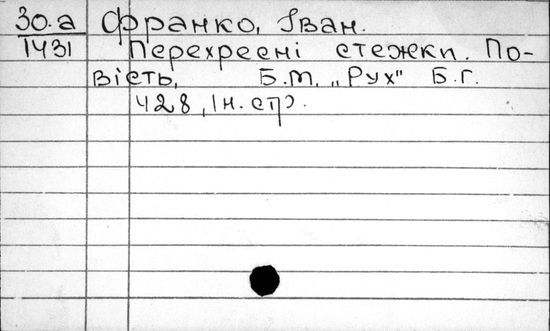 30.a Франко, Іван.
1431 Перехресні стежки. По-
вість, Б.М. „Рух" Б.г.
428, Ін. стр.